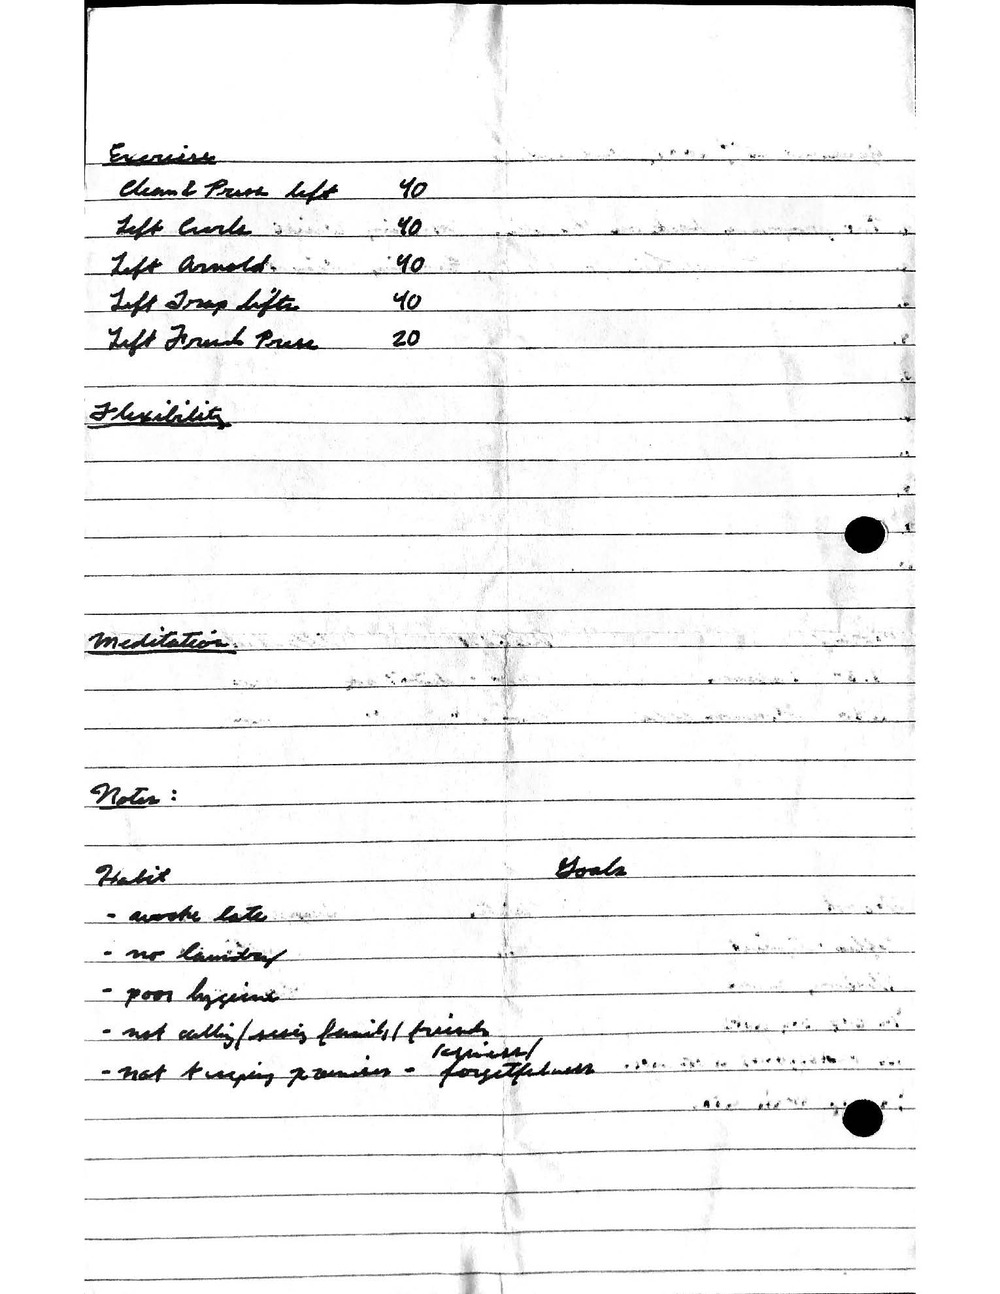 Exercise
Clean & Press left 40
Left Curls 40
Left Arnold 40
Left Trap lifts 40
Left French Press 20
Flexibility
Meditation
Notes:
Habit Goals
- awoke late
- no laundry
- poor hygiene
- not calling/seeing family/friends
- not keeping promises - forgetfulness